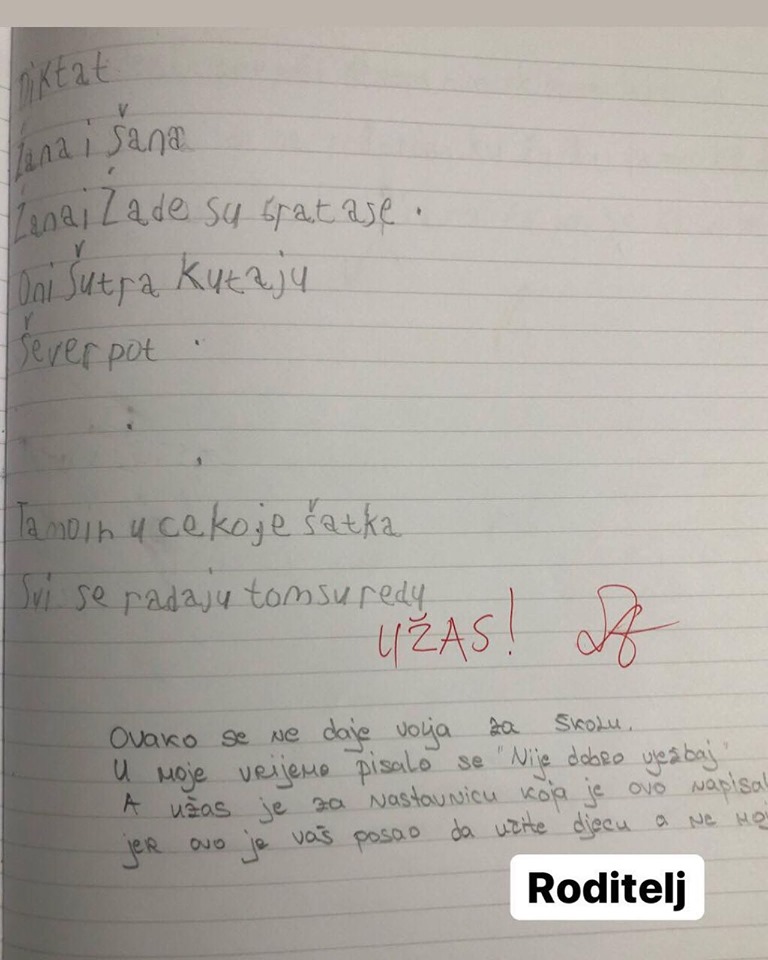 Diktat
Žana i Šana
Žana i Žade su bratase.
Oni šutra kutaju
Šever pot.
Tamoih u cekoje šatka
Svi se radaju tomsuredu
UŽAS!
Ovako se ne daje volja za školu.
U moje vrijeme pisalo se "Nije dobro vježbaj"
A užas je za nastavnicu koja je ovo napisal
jer ovo je vaš posao da učite djecu a ne
Roditelj